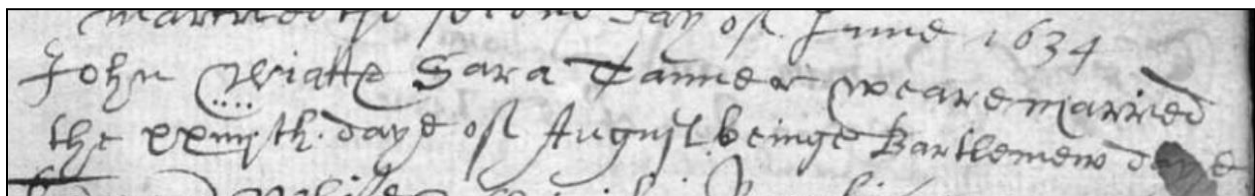 married the second day of June 1634
John Wiatte Sara Tanner weare married
the xxiiijth daye of August beinge Bartlemew daye